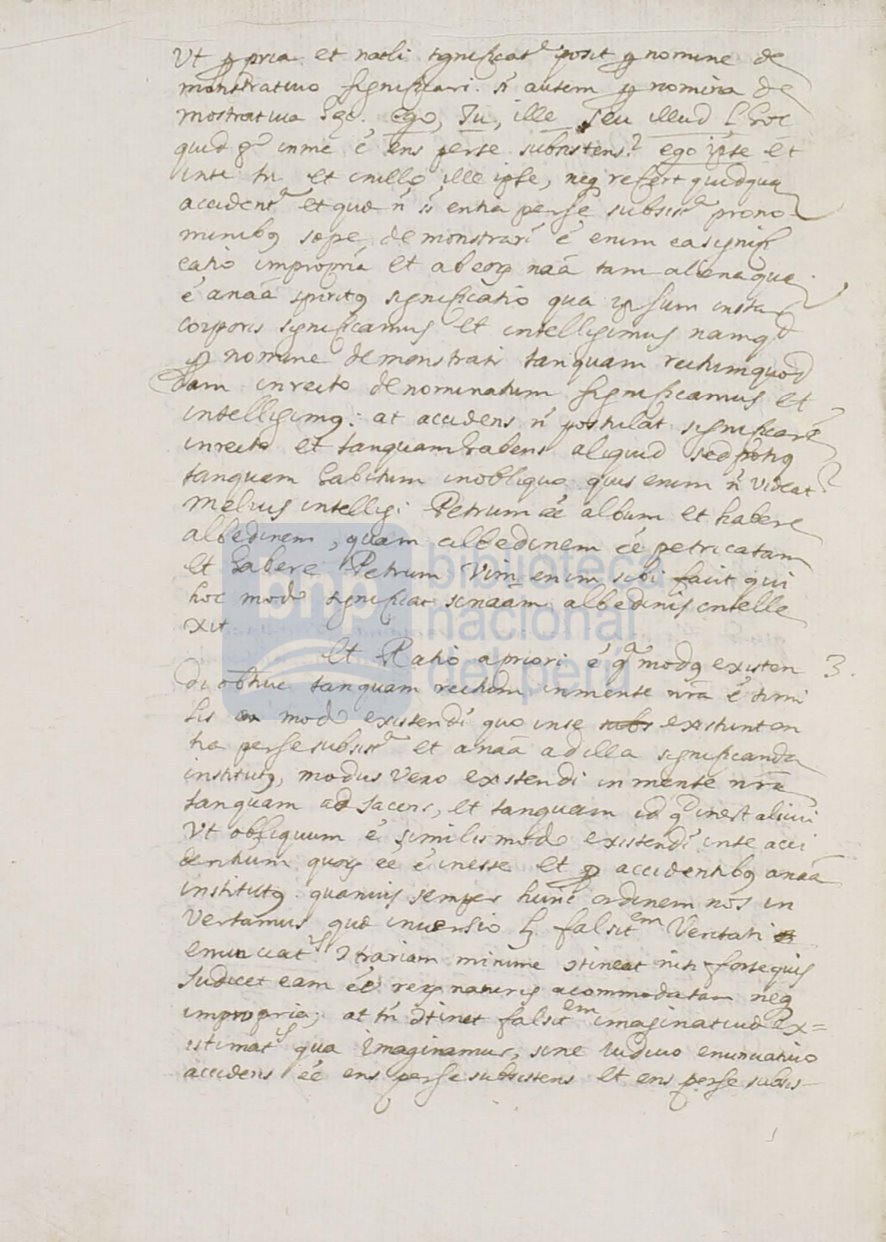 Ut ꝓpria et natli significatᵉ posit ꝓ nomine de
monstratiuo significari. n̄ autem ꝓ nomina de
mostratiua ego, Tu, ille seu illud hoc
quid inme ē ens perse subsistens? ego ipse et
inte tu et inillo ille ipse, neq refert quidqua
accidentᵃ et que n̄ st́ entia perse subsistᵃ prono
minibꝯ sepe demonstrari ē enim ea signifi
catio impropria et ab eoꝝ naā tam aliena qua
ē anaā spiritꝯ significatio qua ipsum instar
corporis significamus et intelligimus namqᵈ
ꝓ nomine demonstrati tanquam rectum quod
dam inrecto denominatum significamus et
intelligimꝯ: at accidens n̄ postulat significari
inrecto et tanquam habens aliquid sed potiꝯ
tanquam habitum inobliquo quis enim n̄ videat
melius intelligi Petrum ēē album et habere
albedinem, quam albedinem ēē petricatam
et habere Petrum Vim enim sibi facit qui
hoc modo significat sinaam albedinis intelle
xit
Et Ratio apriori ē qᵃ modꝯ existen 3.
di obtuc tanquam rectum inmente nr̄a ē simi
lis modo existendi quo inse existunt en
tia perse subsistᵃ et anaā adilla significanda
institutꝯ, modus vero existendi in mente nr̄a
tanquam ad Jacens, et tanquam id qᵈ inest alicui
Vt obliquum ē similis modo existendi inse acci
dentium quoꝝ ee ē inesse et ꝓ accidentibꝯ anaā
institutꝯ quamuis semper hunc ordinem nos in
vertamus que inuersio falsitᵉᵐ Veritati
enunciatⁱˢ ↄtrariam minime ↄtineat nisi forte quis
Judicet eam ēē reꝝ naturis acommodatam neq
impropria; at tn̄ ↄtinet falsitᵉᵐ imaginatiuā ex=
istimatⁱˢ qua Imaginamur, sine Iudicio enunciatiuo
accidens ēē ens perse subsistens et ens perse subsis-
bnp biblioteca
nacional
del perú